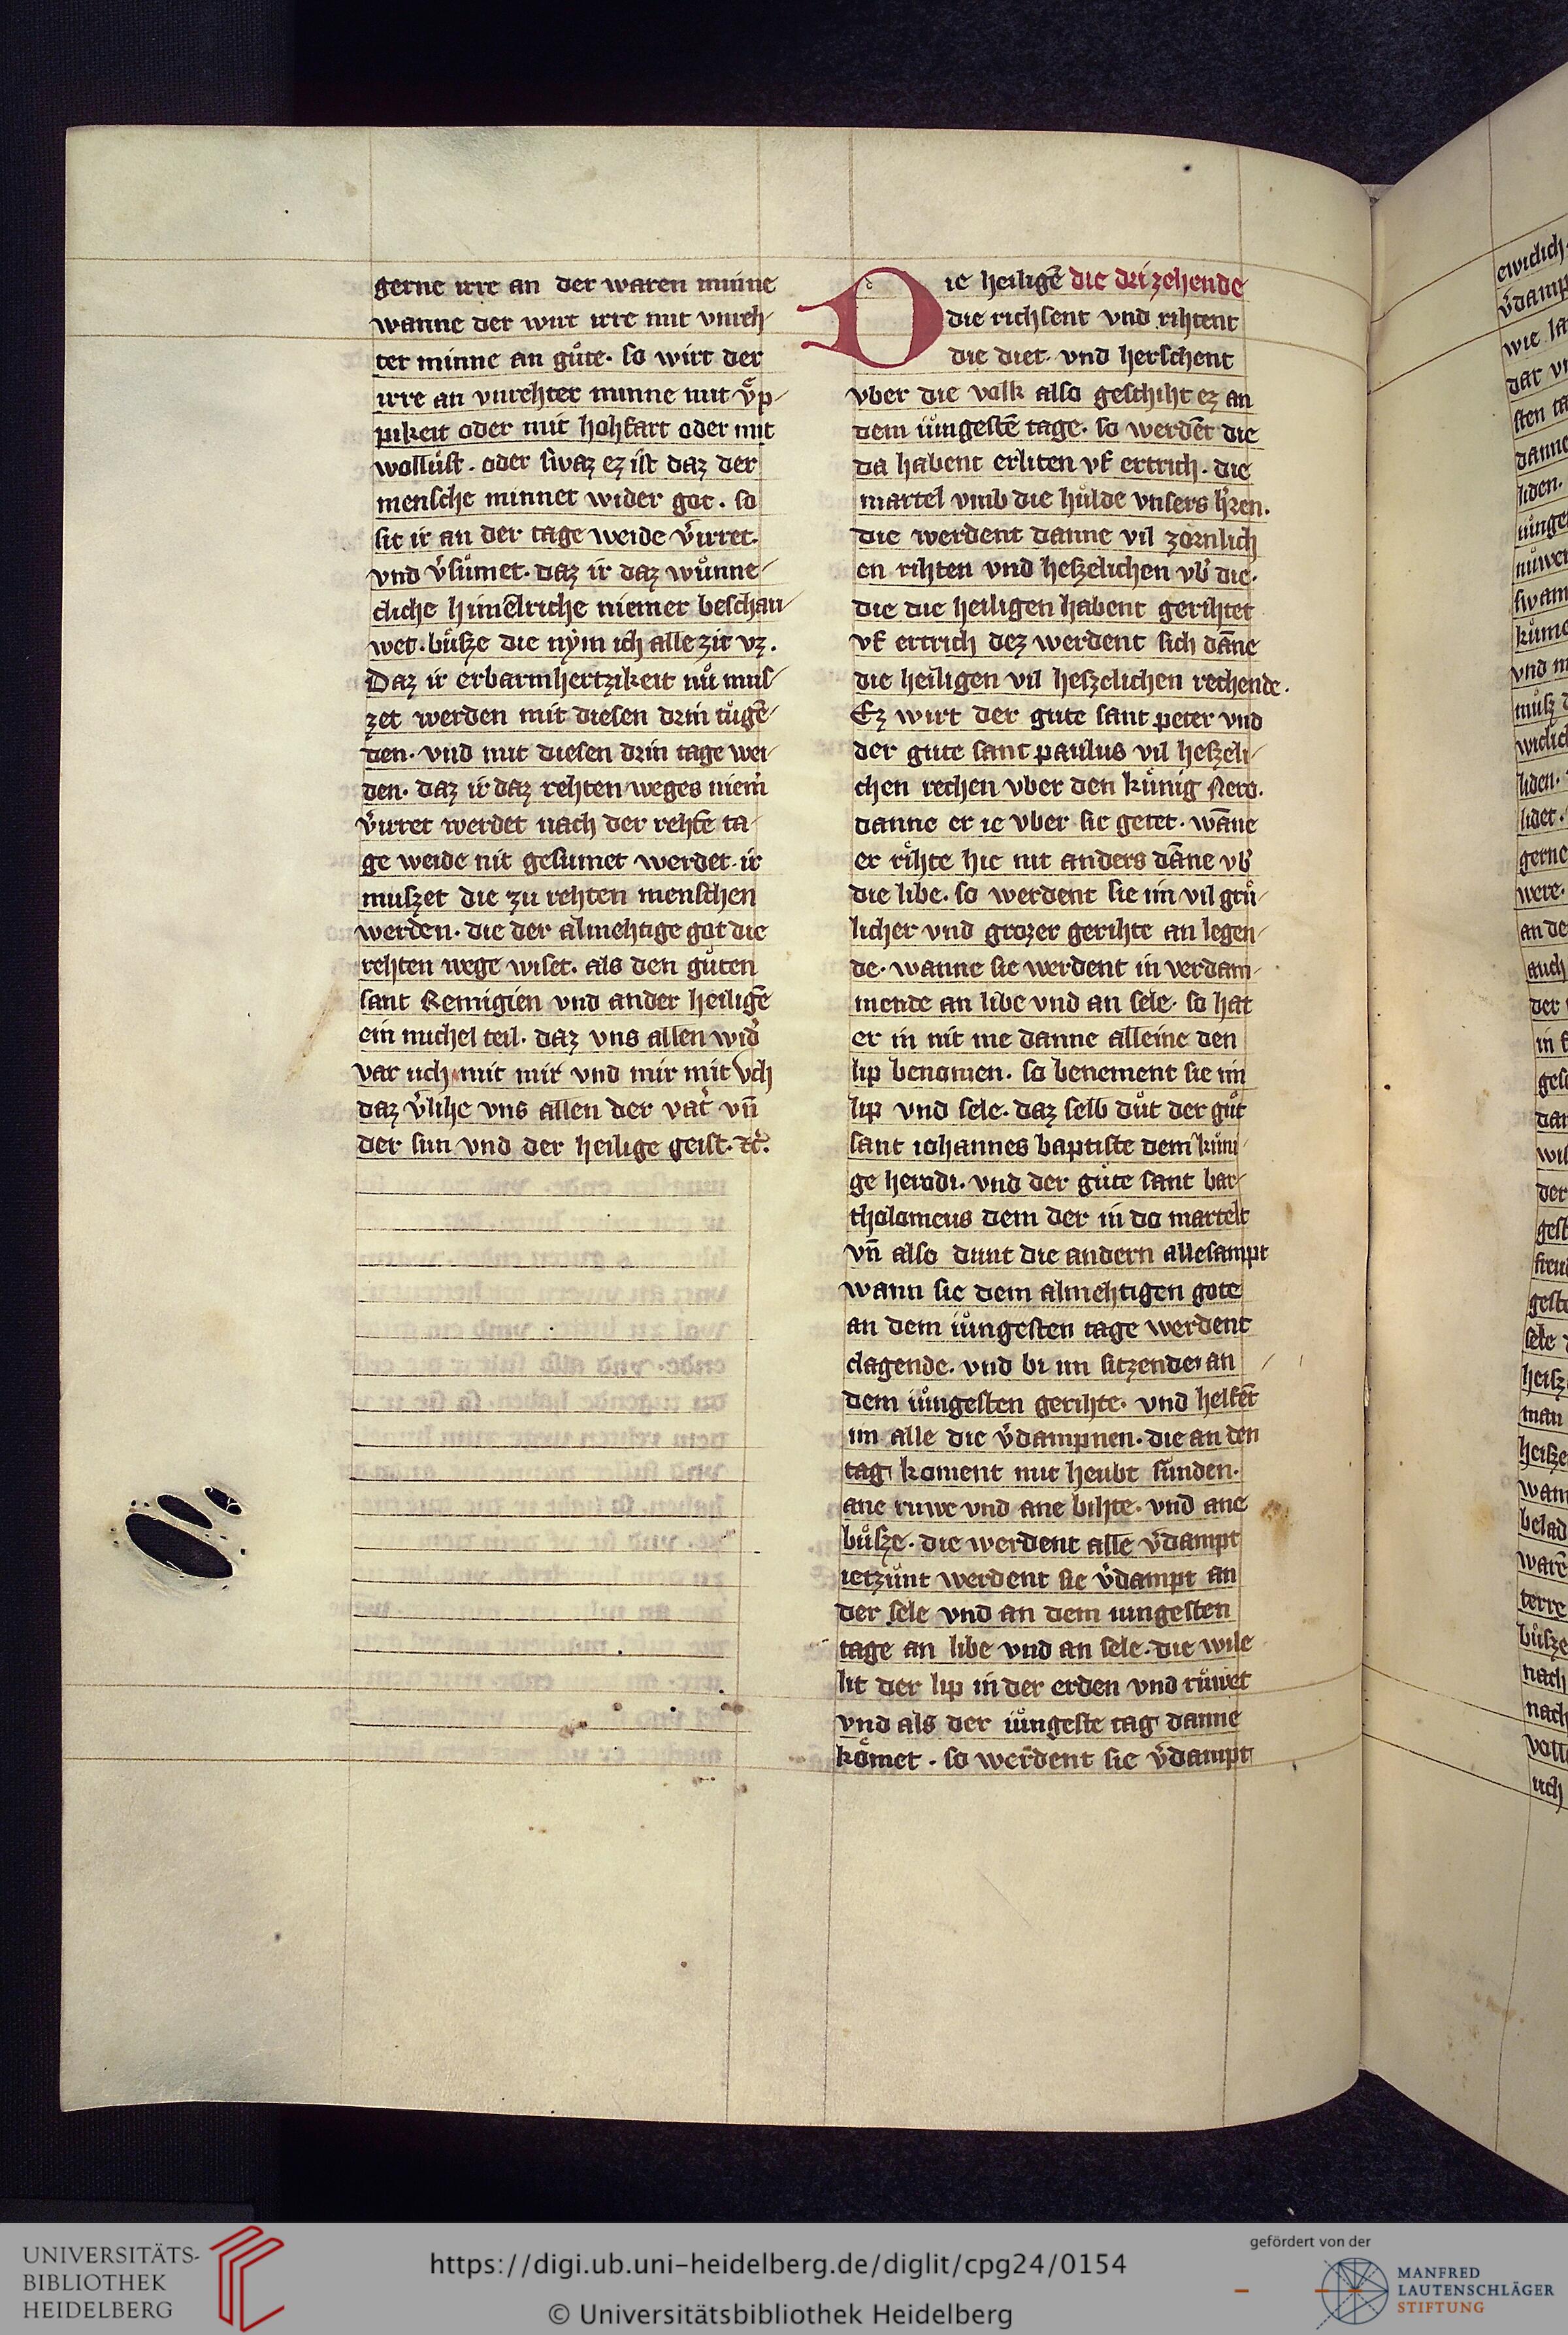 gerne irre an der waren minne
wanne der wirt irre mit vnreh-
ter minne an gůte. so wirt der
irre an vnrehter minne mit v̊p-
pikeit oder mit hohfart oder mit
wollůst. oder swaz ez ist daz der
mensche minnet wider got. so
sit ir an der tage weide v̓irret.
vnd v̓sůmet. daz ir daz wůnne-
cliche himelriche niemer beschau-
wet. bůsze die nẏm ich alle zit vz.
Daz ir erbarmhertzikeit nů mus-
zet werden mit diesen drin tůgē-
den. vnd mit diesen drin tage wei-
den. daz ir daz rehten weges niem̓
v̓irret werdet nach der rehtē ta-
ge weide nit gesumet werdet. ir
muszet die zu rehten menschen
werden. die der almehtige got die
rehten wege wiset. als den gůten
sant Remigien vnd ander heiligē
ein michel teil. daz vns allen wid̓
var uch mit mir vnd mir mit vch
daz v̓lihe vns allen der vat̓ vn̄
der sun vnd der heilige geist. ꝛc̓.
Die heiligē die drizehende
die richsent vnd rihtent
die diet. vnd herschent
vber die volk also geschiht ez an
dem iůngestē tage. so werdēt die
da habent erliten vf ertrich. die
martel vmb die hůlde vnsers h̓ren.
die werdent danne vil zornlich
en rihten vnd heszelichen vb̓ die.
die die heiligen habent gerihtet
vf ertrich dez werdent sich dāne
die heiligen vil heszelichen rechende.
Ez wirt der gute sant peter vnd
der gute sant paulus vil heszeli-
chen rechen vber den kůnig Nero.
danne er ie vber sie getet. wāne
er rihte hie nit anders dāne vb̓
die libe. so werdent sie im vil grů-
licher vnd grozer gerihte an legen-
de. wanne sie werdent in verdam-
mende an libe vnd an sele. so hat
er in nit me danne alleine den
lip benomen. so benement sie im
lip vnd sele. daz selb důt der gůt
sant iohannes baptiste dem kůni-
ge herodi. vnd der gůte sant bar-
tholomeus dem der in do martelt
vn̄ also dunt die andern allesampt
wann sie dem almehtigen gote
an dem iůngesten tage werdent
clagende. vnd bi im sitzende an
dem iůngesten gerihte. vnd helfēt
im alle die v̓dampnen. die an den
tag koment mit heubt sůnden.
ane ruwe vnd ane bihte. vnd ane
bůsze. die werdent alle v̓dampt
ietzůnt werdent sie v̓dampt an
der sele vnd an dem iungesten
tage an libe vnd an sele. die wile
lit der lip in der erden vnd růwet
vnd als der iůngeste tag danne
kǒmet. so werdent sie v̓dampt
ewiclich
v̓damp
wie
dar
sten
danne
liden.
můsz
liden.
lidet.
gerne
were.
an de
auch
der
in
dar
der
sele
heisz
man
belad
terre
bůsze
nach
nach
uch
UNIVERSITÄTS-
BIBLIOTHEK
HEIDELBERG
https://digi.ub.uni-heidelberg.de/diglit/cpg24/0154
© Universitätsbibliothek Heidelberg
gefördert von der
MANFRED
LAUTENSCHLÄGER
STIFTUNG